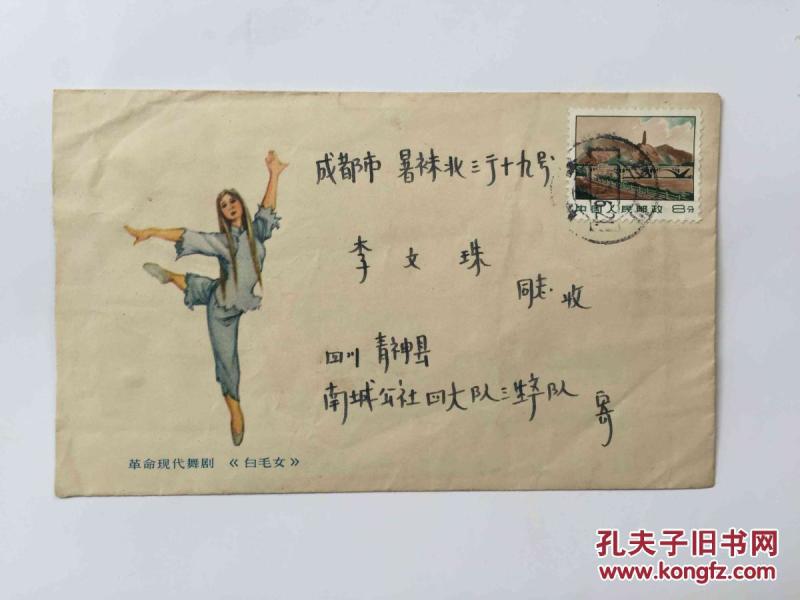 成都市 暑袜北三 十九号
中国人民邮政 8分
李文珠
同志 收
四川 青神县
南城公社四大队三生产队
寄
革命现代舞剧 《白毛女》
孔夫子旧书网
www.kongfz.com